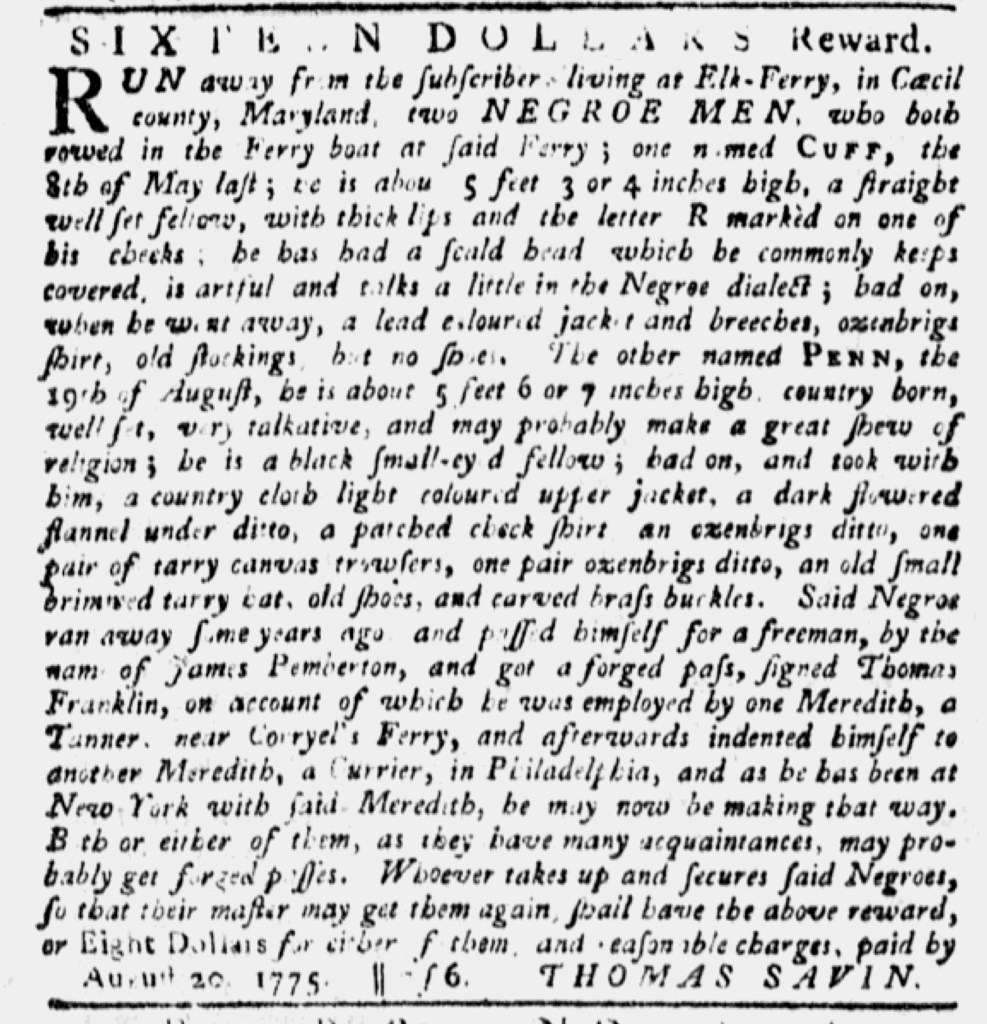 SIXTEEN DOLLARS Reward.
RUN away from the ſubſcriber living at Elk-Ferry, in Cæcil
county, Maryland, two NEGROE MEN, who both
rowed in the Ferry boat at ſaid Ferry; one named CUFF, the
8th of May laſt; he is about 5 feet 3 or 4 inches high, a ſtraight
well ſet fellow, with thick lips and the letter R marked on one of
his cheeks; he has had a ſcald head which he commonly keeps
covered, is artful and talks a little in the Negroe dialect; had on,
when he went away, a lead coloured jacket and breeches, oxenbrigs
ſhirt, old ſtockings, but no ſhoes. The other named PENN, the
19th of Auguſt, he is about 5 feet 6 or 7 inches high, country born,
well ſet, very talkative, and may probably make a great ſhew of
religion; he is a black ſmall-ey'd fellow; had on, and took with
him, a country cloth light coloured upper jacket, a dark flowered
flannel under ditto, a patched check ſhirt, an oxenbrigs ditto, one
pair of tarry canvas trowſers, one pair oxenbrigs ditto, an old ſmall
brimmed tarry hat, old ſhoes, and carved braſs buckles. Said Negroe
ran away ſome years ago and paſſed himſelf for a freeman, by the
name of James Pemberton, and got a forged paſs, ſigned Thomas
Franklin, on account of which he was employed by one Meredith, a
Tanner, near Corryel's Ferry, and afterwards indented himſelf to
another Meredith, a Currier, in Philadelphia, and as he has been at
New-York with ſaid Meredith, he may now be making that way.
Both or either of them, as they have many acquaintances, may pro-
bably get forged paſſes. Whoever takes up and ſecures ſaid Negroes,
ſo that their maſter may get them again, ſhall have the above reward,
or Eight Dollars for either of them, and reaſonable charges, paid by
Auguſt 20, 1775. || ſ6. THOMAS SAVIN.